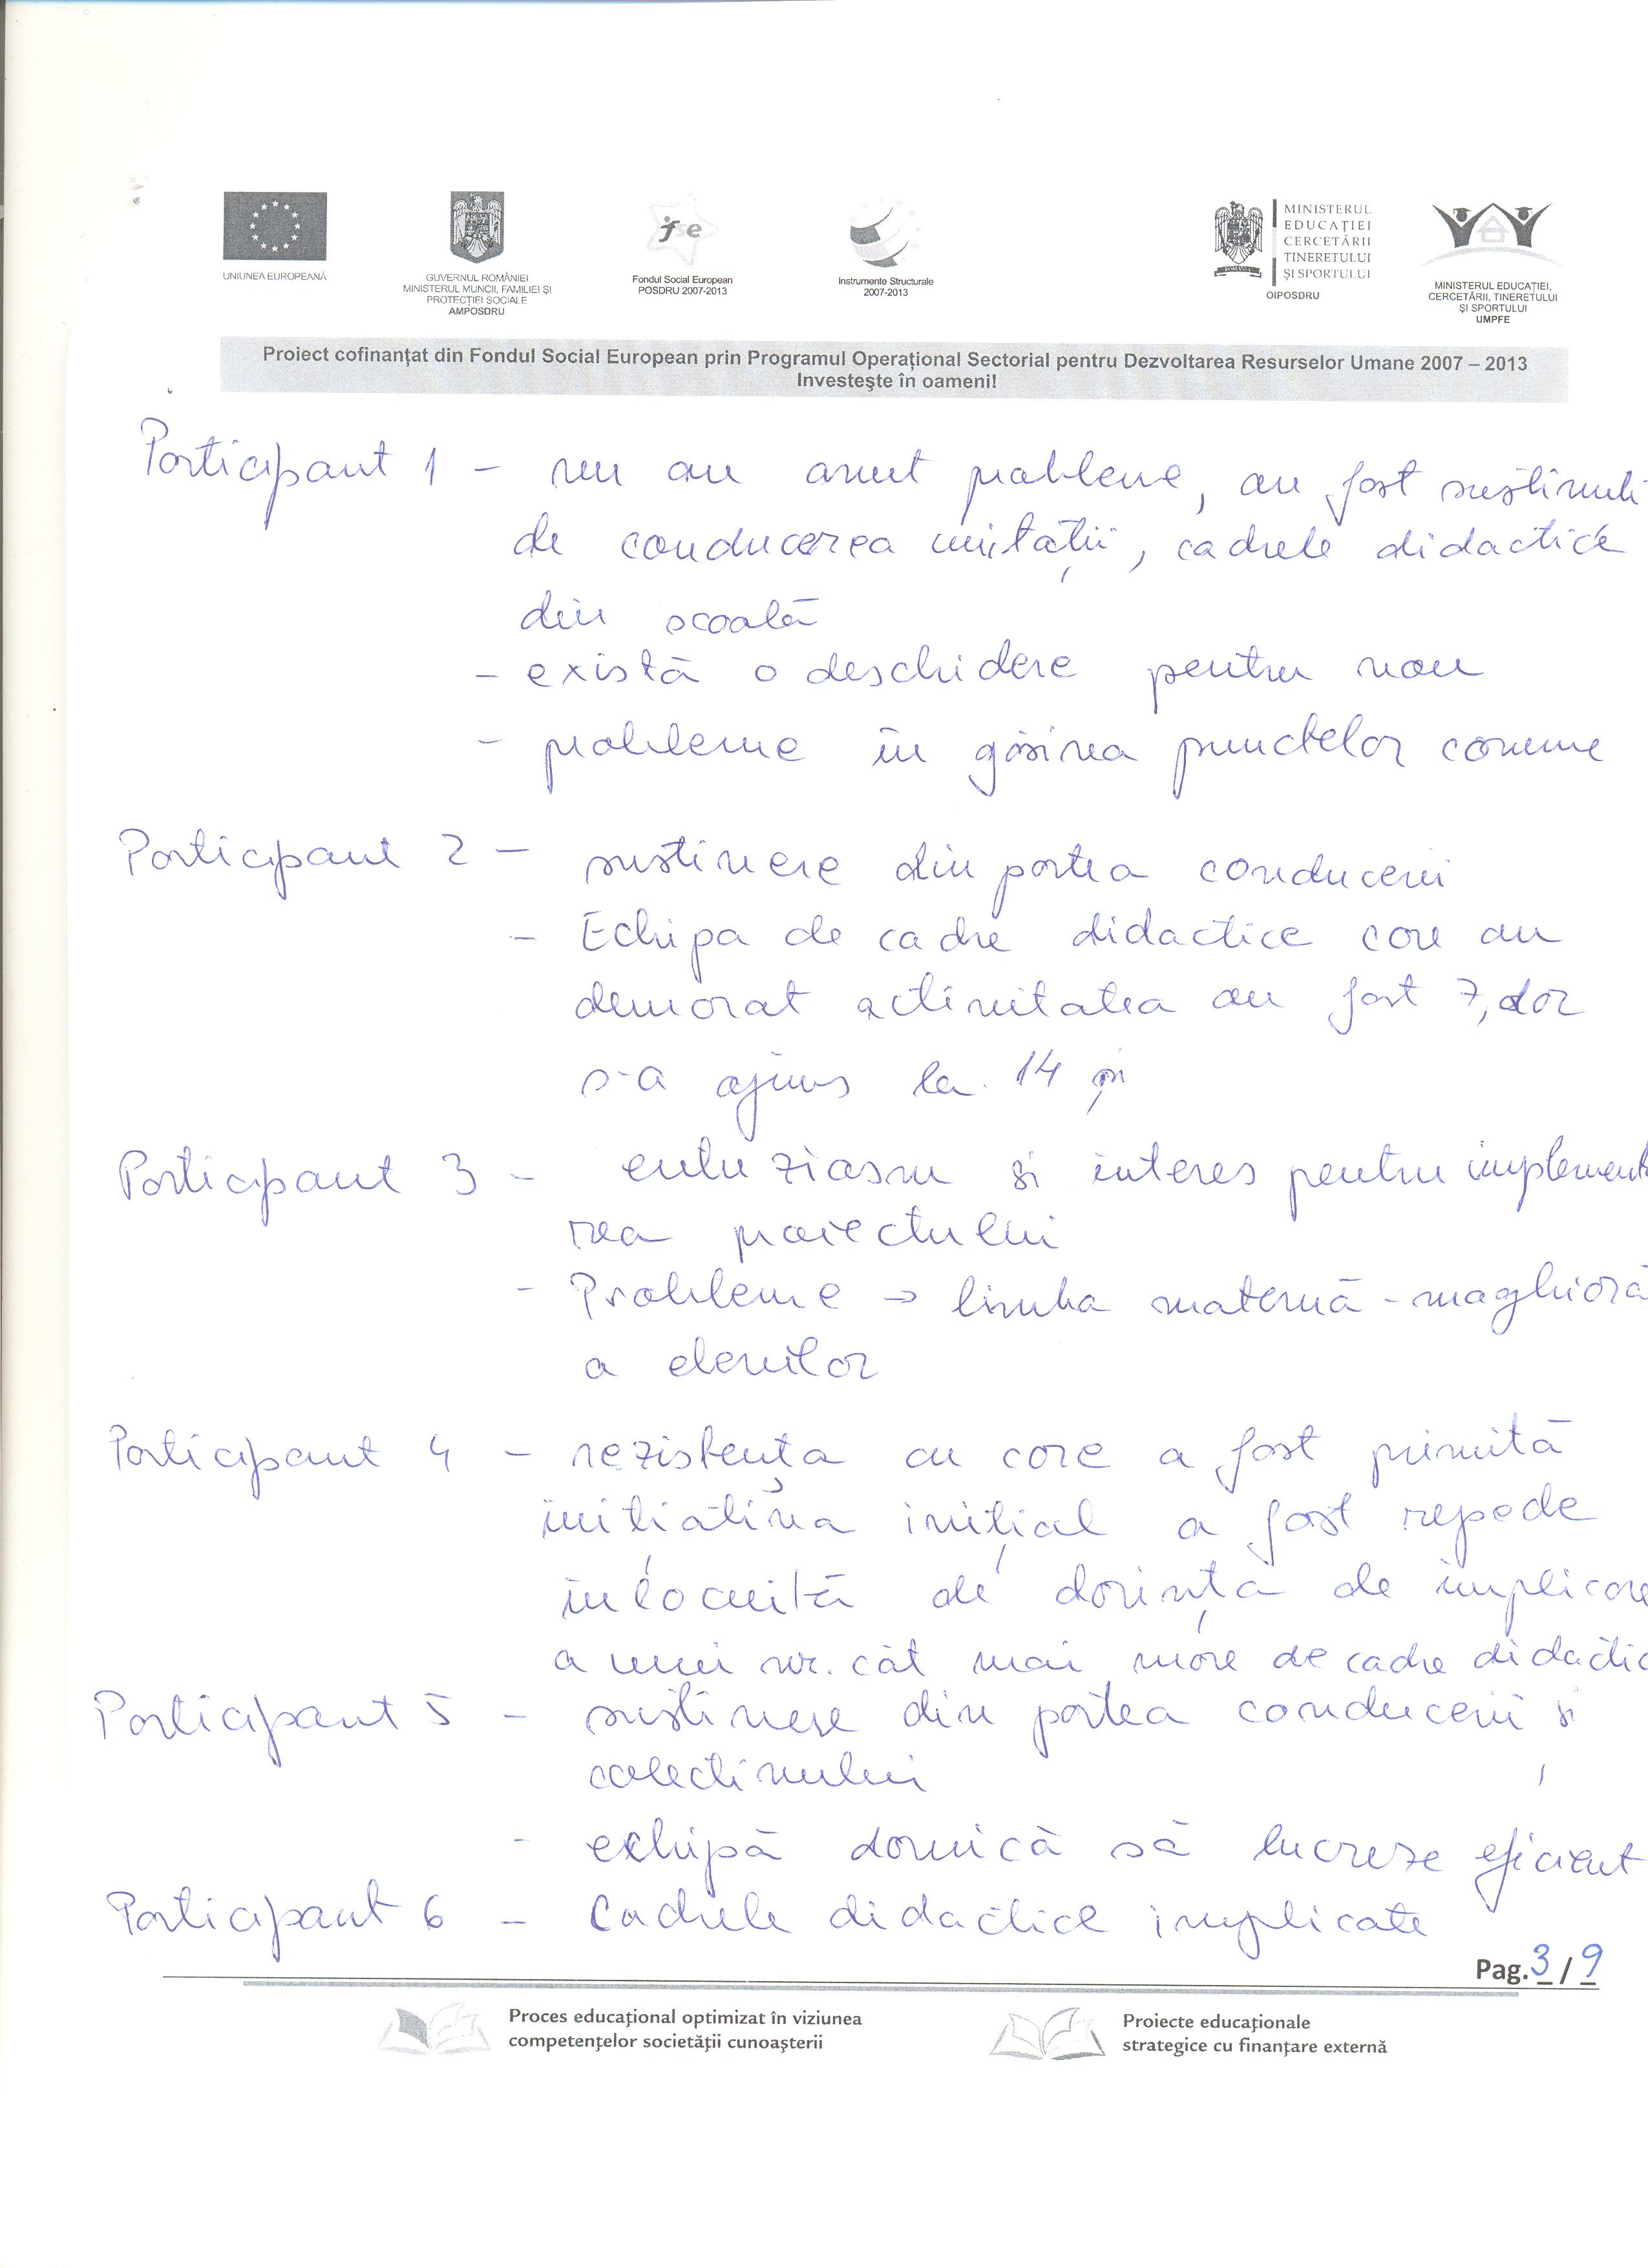 UNIUNEA EUROPEANĂ
GUVERNUL ROMÂNIEI
MINISTERUL MUNCII, FAMILIEI ŞI
PROTECŢIEI SOCIALE
AMPOSDRU
fse
Fondul Social European
POSDRU 2007-2013
Instrumente Structurale
2007-2013
MINISTERUL
EDUCAŢIEI
CERCETĂRII
TINERETULUI
ŞI SPORTULUI
OIPOSDRU
MINISTERUL EDUCAŢIEI,
CERCETĂRII, TINERETULUI
ŞI SPORTULUI
UMPFE
Proiect cofinanţat din Fondul Social European prin Programul Operaţional Sectorial pentru Dezvoltarea Resurselor Umane 2007 – 2013
Investeşte în oameni!
Participant 1 - nu au avut probleme, au fost sustinuti
de conducerea unităţii, cadrele didactice
din scoală
- există o deschidere pentru nou
- probleme în găsirea punctelor comune
Participant 2 - sustinere din partea conducerii
- Echipa de cadre didactice care au
demarat activitatea au fost 7, dar
s-a ajuns la 14
Participant 3 - entuziasm si interes pentru implementa
rea proiectului
- Probleme → limba maternă - maghiară
a elevilor
Participant 4 - rezistenţa cu care a fost primită
iniţiativa iniţial a fost repede
înlocuită de dorinţa de implicare
a unui nr. cât mai mare de cadre didactic
Participant 5 - sustinere din partea conducerii şi
colectivului
- echipă dornică să lucreze eficient
Participant 6 - Cadrele didactice implicate
Pag. 3 / 9
Proces educaţional optimizat în viziunea
competenţelor societăţii cunoaşterii
Proiecte educaţionale
strategice cu finanţare externă